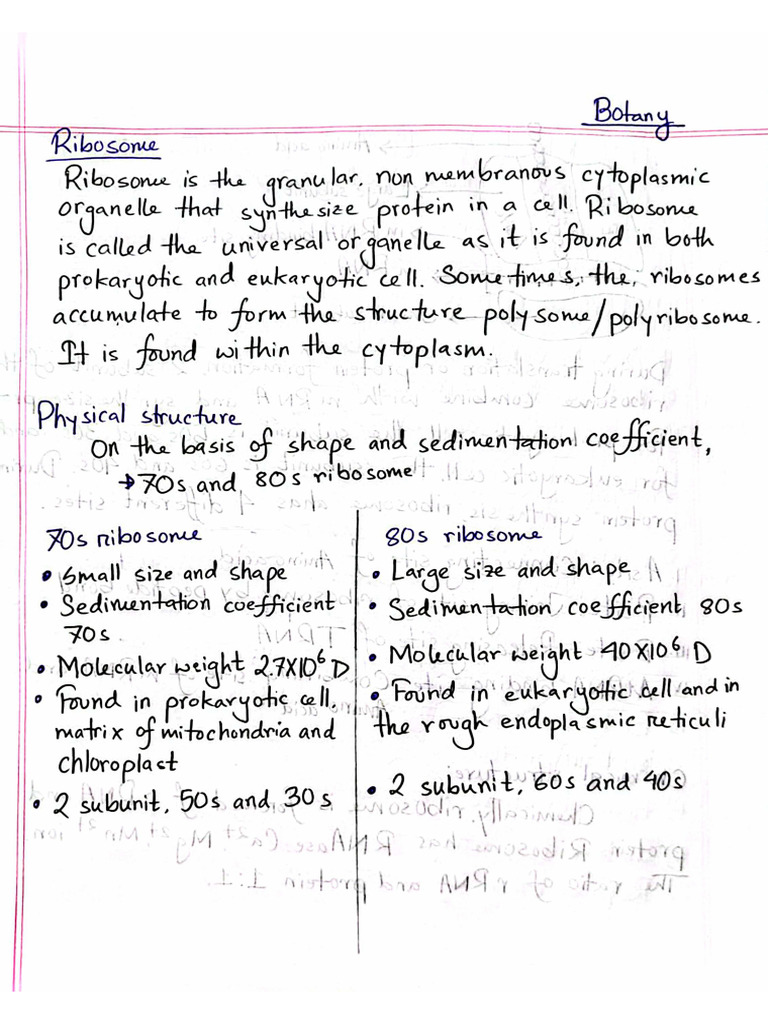 Botany
Ribosome
Ribosome is the granular, non membranous cytoplasmic
organelle that synthesize protein in a cell. Ribosome
is called the universal organelle as it is found in both
prokaryotic and eukaryotic cell. Sometimes, the, ribosomes
accumulate to form the structure polysome/polyribosome.
It is found within the cytoplasm.
Physical structure
On the basis of shape and sedimentation coefficient,
→ 70s and 80s ribosome
70s ribosome
• Small size and shape
• Sedimentation coefficient
70s.
• Molecular weight 2.7X10⁶ D
• Found in prokaryotic cell,
matrix of mitochondria and
chloroplast
• 2 subunit, 50s and 30s
80s ribosome
• Large size and shape
• Sedimentation coefficient, 80s
• Molecular weight 40X10⁶ D
• Found in eukaryotic cell and in
the rough endoplasmic reticuli
• 2 subunit, 60s and 40s